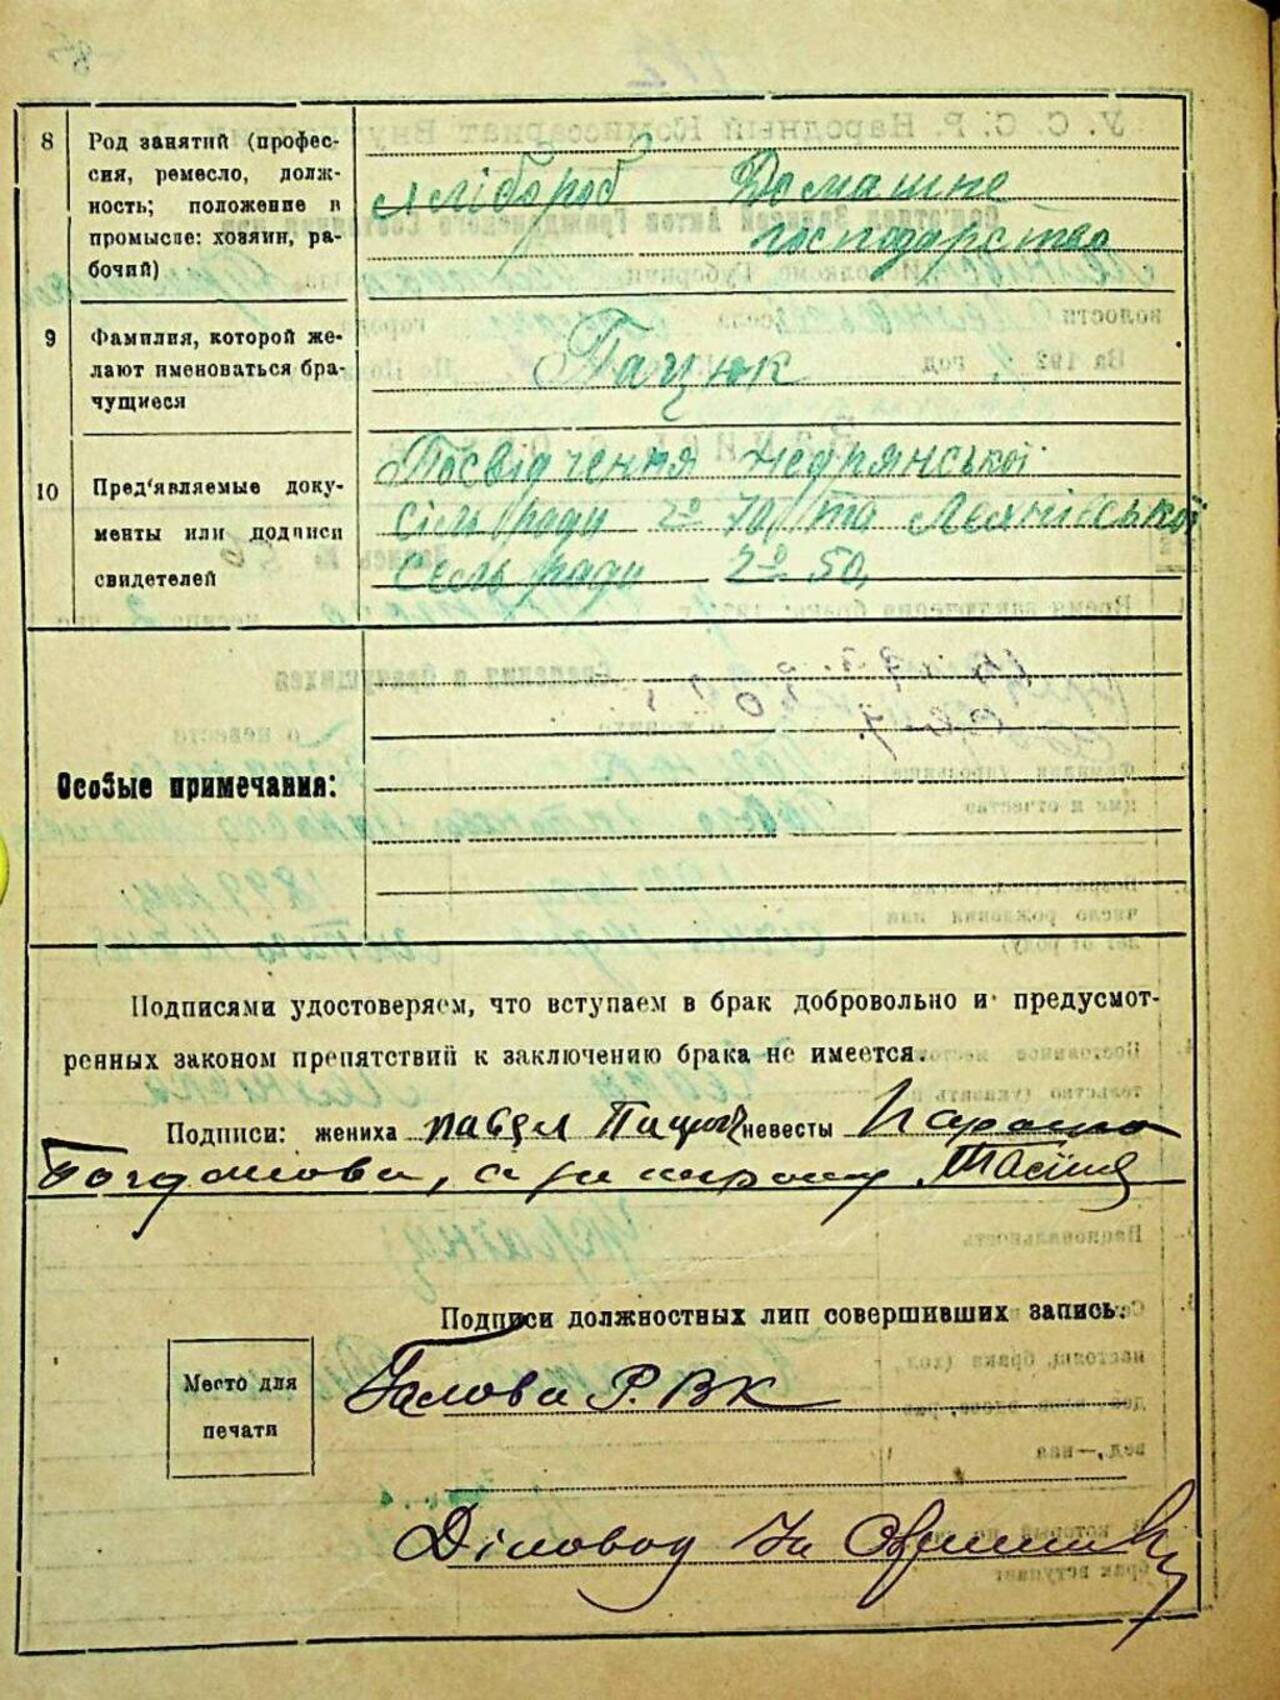 8
Род занятий (профес-
сия, ремесло, долж-
ность; положение в
промысле: хозяин, ра-
бочий)
хлібороб Домашнє
господарство
9
Фамилия, которой же-
лают именоваться бра-
чущиеся
Пацюк
10
Пред'являемые доку-
менты или подписи
свидетелей
Посвідчення Недрянської
сільради № 70 та Лехнівської
сельради № 50,
Особые примечания:
Подписями удостоверяем, что вступаем в брак добровольно и предусмот-
ренных законом препятствий к заключению брака не имеется.
Подписи: жениха Павел Пацюк невесты Параска
Богданова, а за неграмотну
Подписи должностных лиц совершивших запись:
Место для
печати
Голова Р.В.К
Діловод За